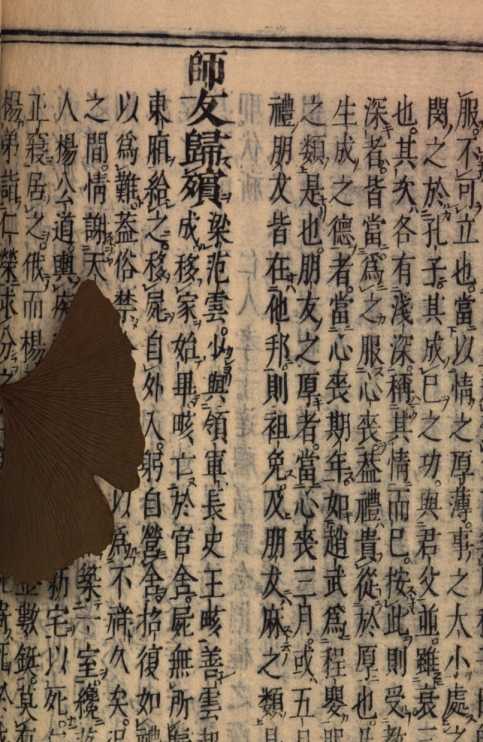 服不可立也。當以情之厚薄。事之大小處之
閔之於孔子其成已之功。與君父並。雖衰三
也。其次各有淺深。稱其情而已。按此則受教
深者。皆當爲之服心喪。葢禮貴從於厚也
生成之德者。當心喪期年。如趙武爲程嬰
之類是也。朋友之厚者。當心喪三月。或五
禮朋友皆在他邦。則袒免。及朋友麻之類
師友歸殯 梁范雲。少與領軍長史王畡善。雲起
成。移家始畢。畡亡於官舍。屍無所歸
東廂給之。移屍自外入。躬自營含。招復如禮
以爲難。葢俗禁 以爲不祥久矣。况
之間。情謝天 築一室纔
人楊公道。輿疾 新宅以死
正寢居之。俄而楊 數鋌莫有
楊弟詣仁榮求分之